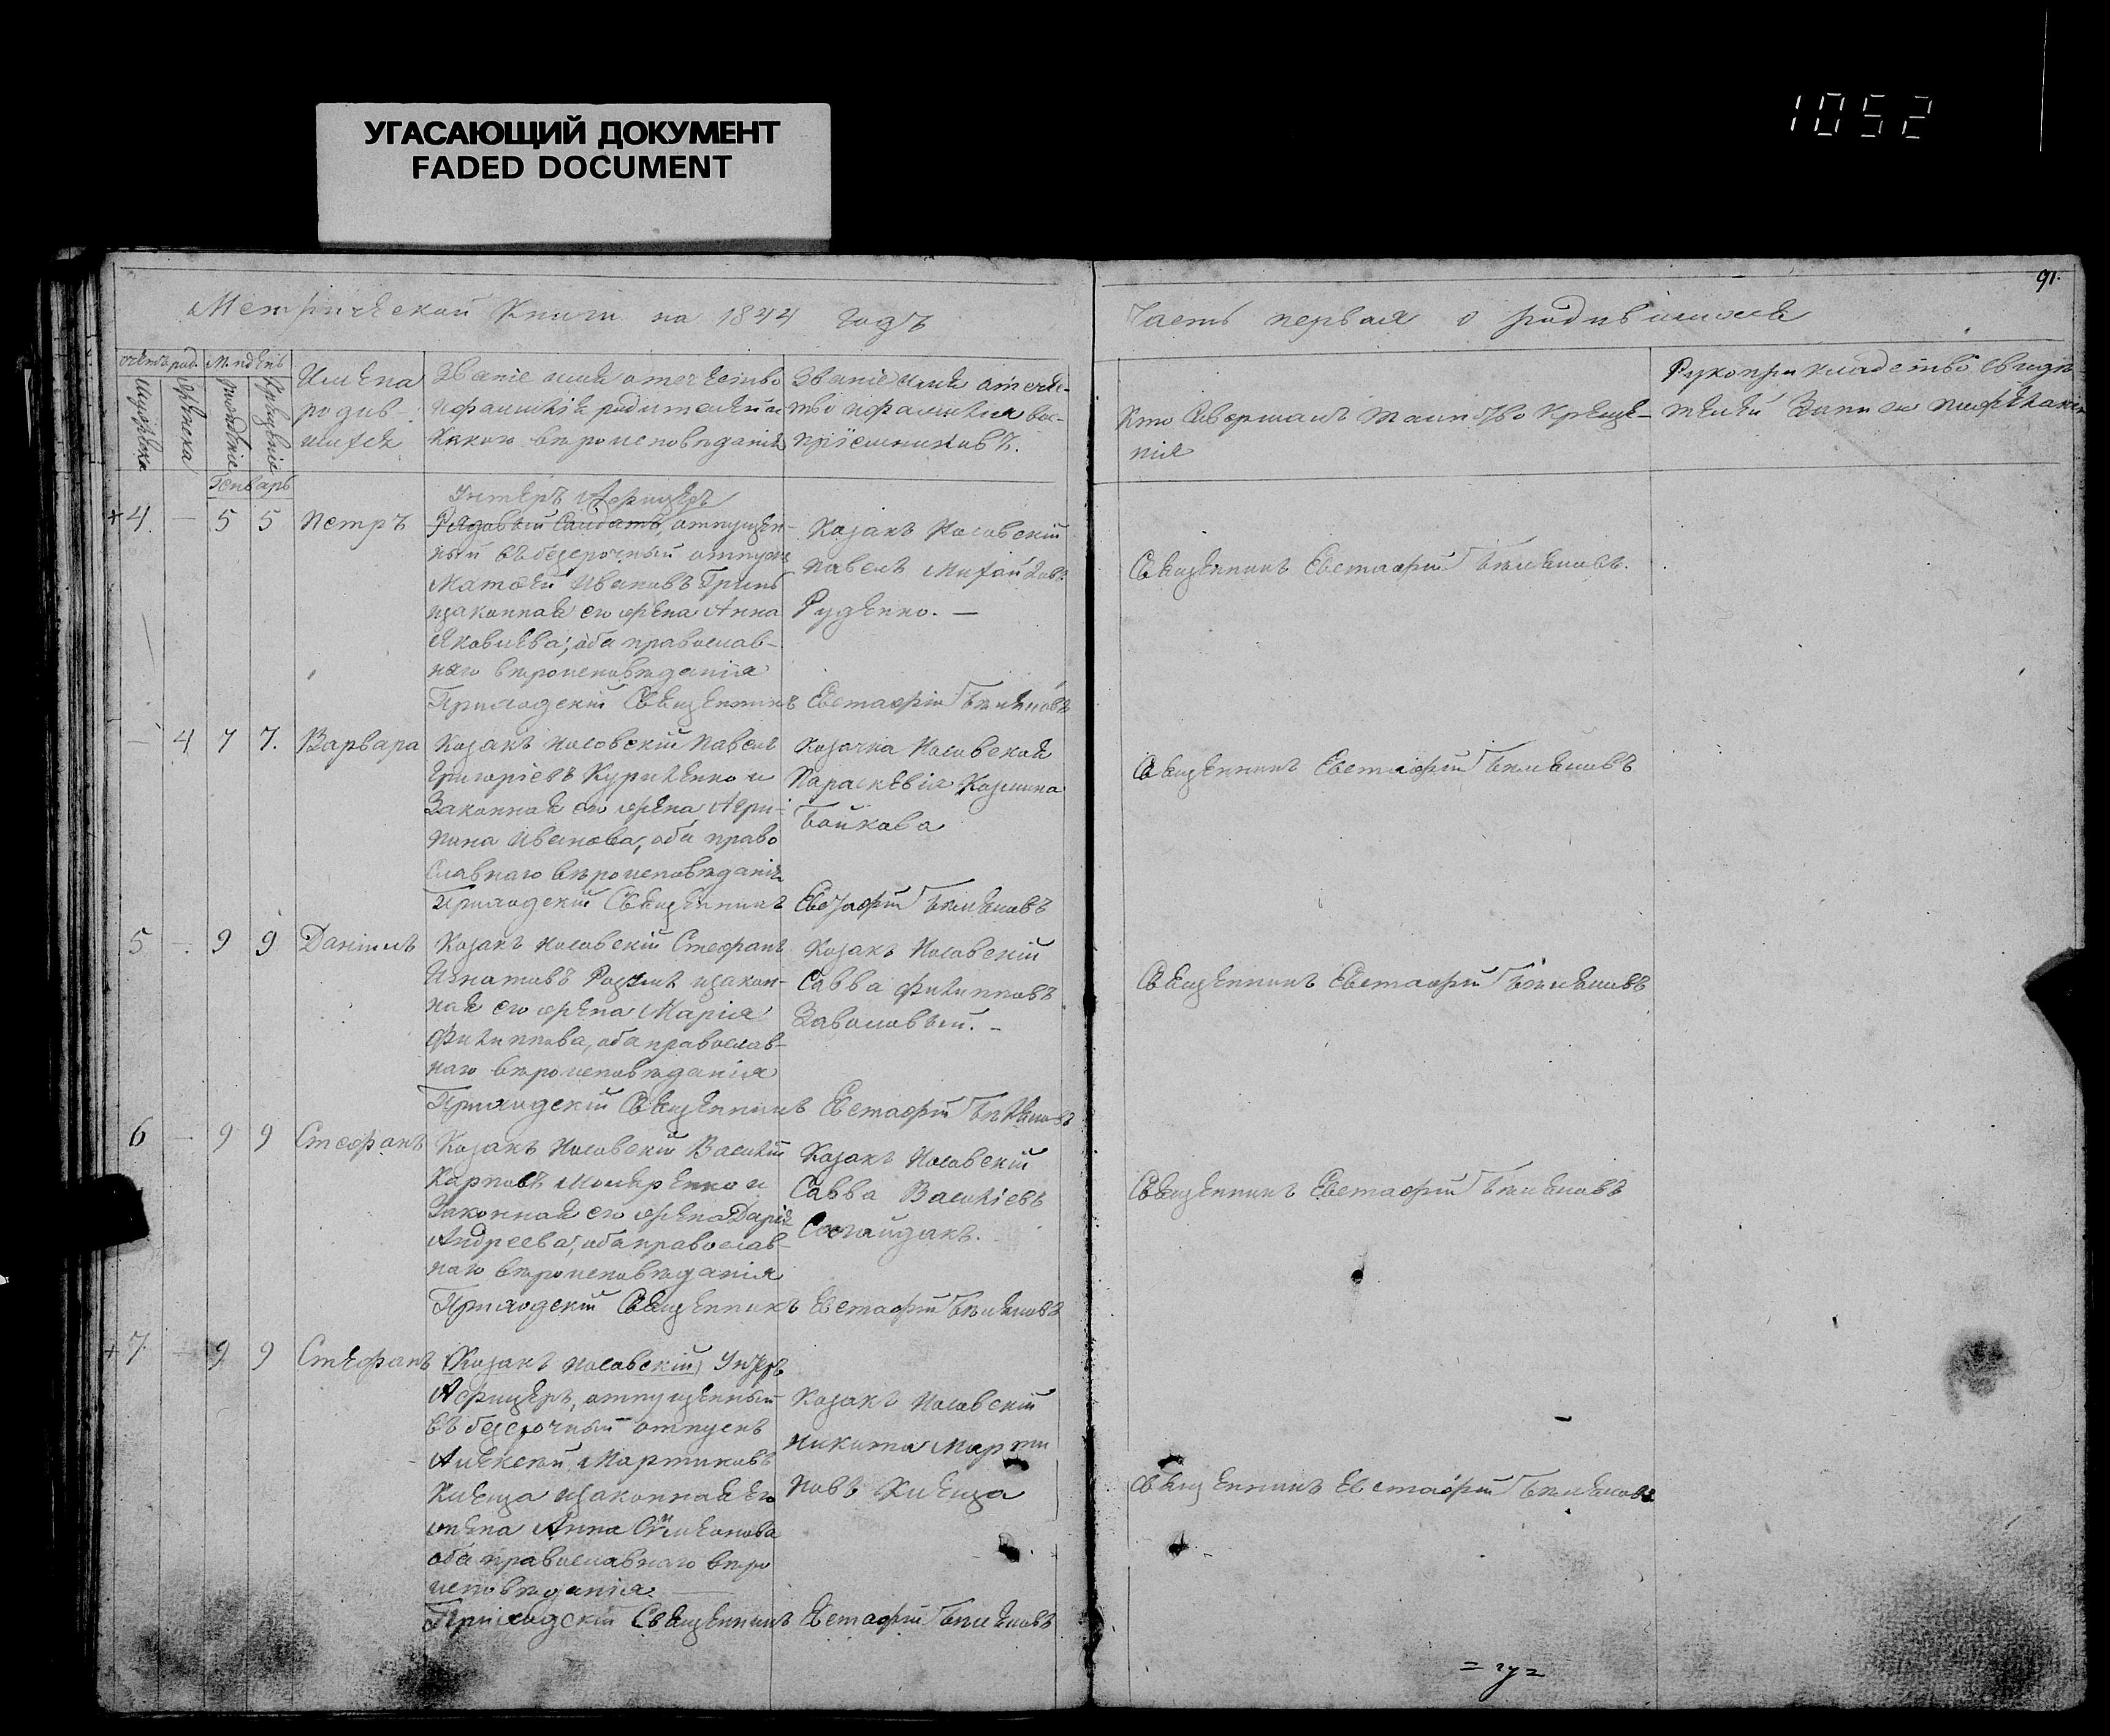 УГАСАЮЩИЙ ДОКУМЕНТ
FADED DOCUMENT
1052
91.
Метрической Книги на 1844 годъ
Часть первая о родившихся
М. и день
Имена
родив-
шихся
Званіе имя отечество
и фамилія родителей и
какого вѣроисповѣданія
Званіе имя отече-
тво и фамилія вос-
пріемниковъ.
Кто Совершалъ таинство Креще-
нія
Рукоприкладство свидѣ-
телей Записи
мужеска
женска
рожденіе
крещеніе
Генварь
4 — 5 5 Петръ
Унтеръ Афицеръ
Рядовый Салдатъ, отпущен-
ный въ безсрочный отпускъ
Матѳей Ивановъ Гринь
изаконная его жена Анна
Яковлева, оба православ-
наго вѣроисповѣданія
Козакъ Носовскій
Павелъ Михайловъ
Руденко. —
Священникъ Евстафій
Приходскій Священникъ Евстафій
— 4 7 7. Варвара
Козакъ Носовскій Павелъ
Григоріевъ Куриленко и
Законная его жена Агри-
пина Иванова, оба право
славнаго вѣроисповѣданія
Козачка Носовская
Параскевія Козмина
Бойкова
Священникъ Евстафій
Приходскій Священникъ Евстафій
5 — 9 9 Даніилъ
Козакъ Носовскій Стефанъ
Игнатовъ изакон-
ная его жена Марія
Филиппова, оба православ-
наго вѣроисповѣданія
Козакъ Носовскій
Савва Филипповъ
Заволовый. —
Священникъ Евстафій
Приходскій Священникъ Евстафій
6 — 9 9 Стефанъ
Козакъ Носовскій Василій
Карповъ и
Законная его жена Дарія
Андреева, оба православ-
наго вѣроисповѣданія
Козакъ Носовскій
Савва Василіевъ
Согайдакъ.
Священникъ Евстафій
Приходскій Священникъ Евстафій
7 — 9 9 Стефанъ
(Козакъ Носовскій) Унтеръ
Афицеръ, отпущенный
въ безсрочный отпускъ
Алексей Мартиновъ
Клеща изаконная его
жена Анна Симеонова
оба православнаго вѣро
исповѣданія
Козакъ Носовскій
Никита Марти
новъ Клеща
Священникъ Евстафій
Приходскій Священникъ Евстафій